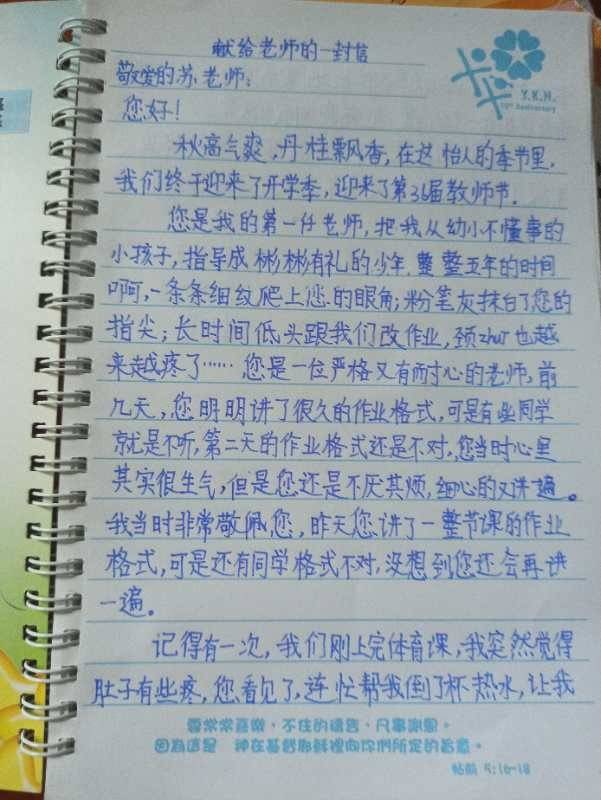 献给老师的一封信
Y.K.H.
Anniversary
敬爱的苏老师：
您好！
秋高气爽，丹桂飘香，在这怡人的季节里，
我们终于迎来了开学季，迎来了第36届教师节．
您是我的第一任老师，把我从幼小不懂事的
小孩子，指导成彬彬有礼的少年．整整五年的时间
啊，一条条细纹爬上您的眼角；粉笔灰抹白了您的
指尖；长时间低头跟我们改作业，颈zhuī也越
来越疼了……您是一位严格又有耐心的老师，前
几天，您明明讲了很久的作业格式，可是有些同学
就是不听，第二天的作业格式还是不对，您当时心里
其实很生气，但是您还是不厌其烦，细心的又讲遍。
我当时非常敬佩您，昨天您讲了一整节课的作业
格式，可是还有同学格式不对，没想到您还会再讲
一遍。
记得有一次，我们刚上完体育课，我突然觉得
肚子有些疼，您看见了，连忙帮我倒了杯热水，让我
要常常喜樂，不住的禱告，凡事謝恩。
因為這是 神在基督耶穌裡向你們所定的旨意。
帖前 5:16-18